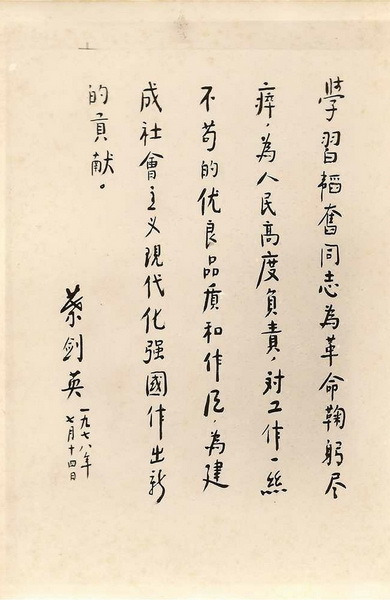 學習韬奮同志為革命鞠躬尽
瘁，為人民高度負責，对工作一絲
不苟的优良品质和作风，為建
成社會主义現代化强國作出新
的貢献。
葉劍英
一九七八年
七月十四日